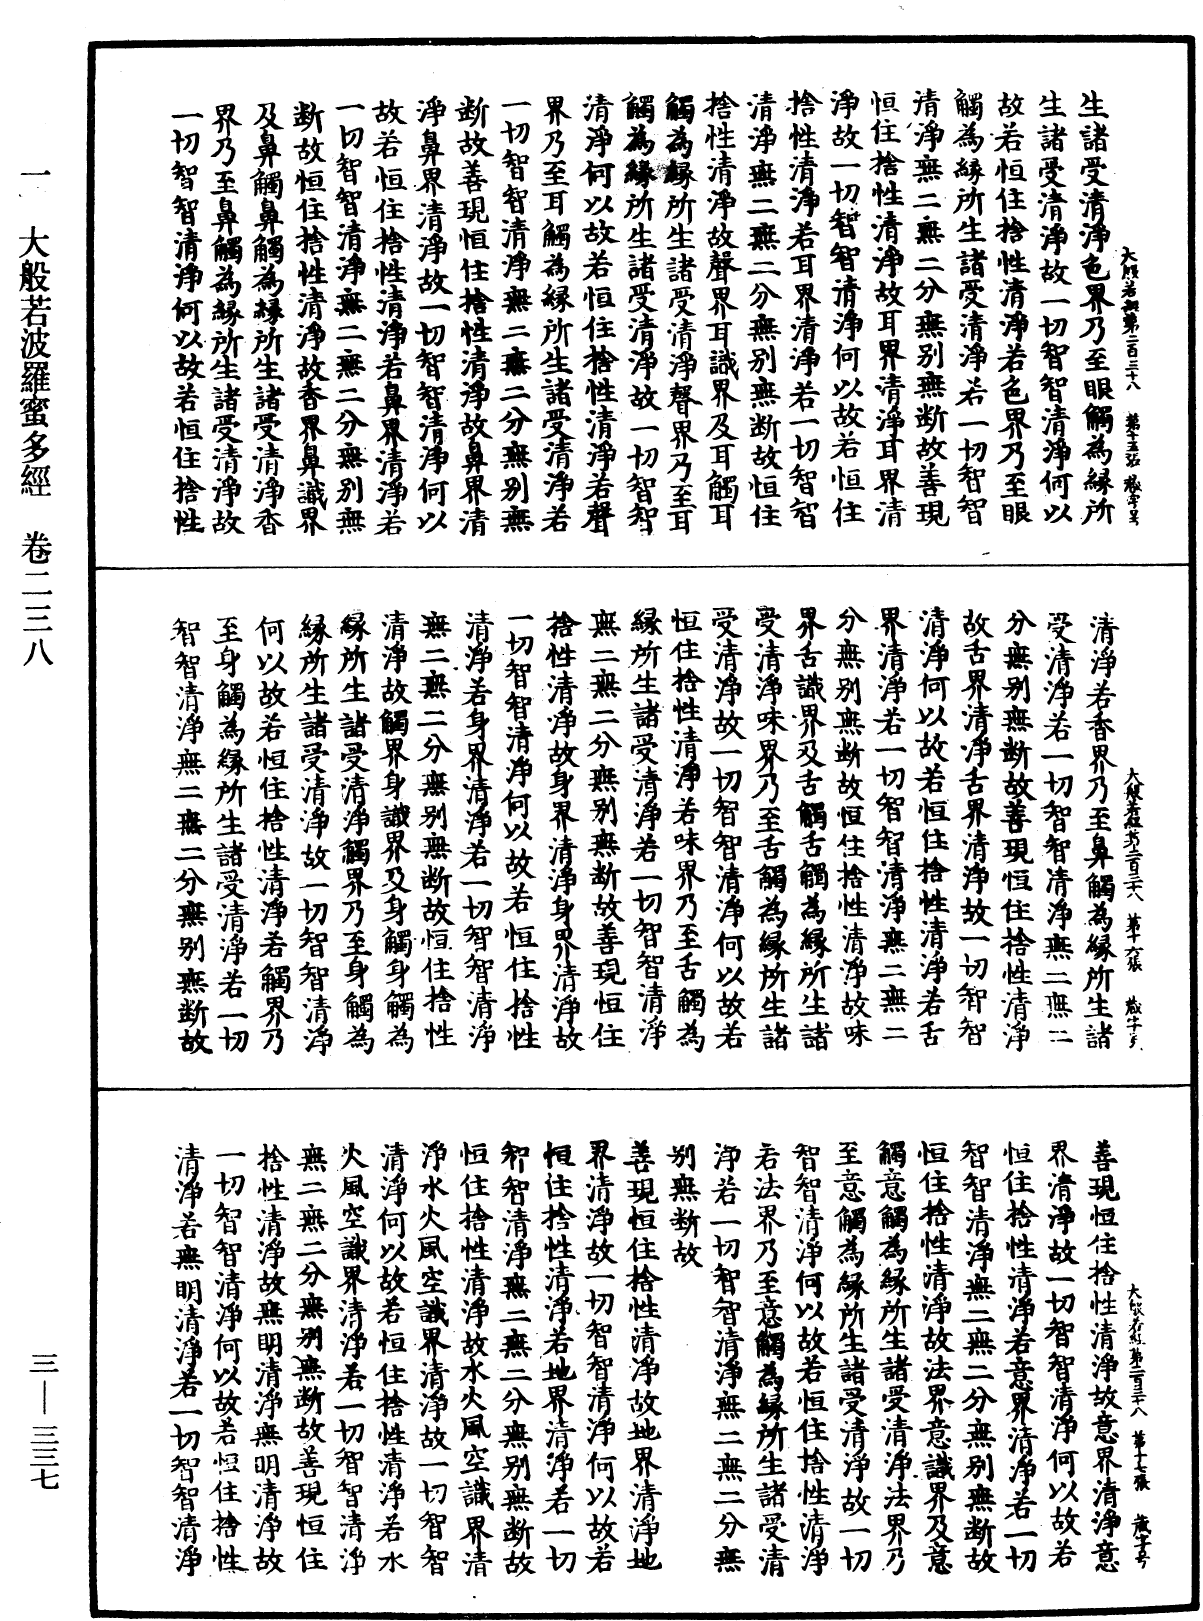 生諸受清淨色界乃至眼觸為緣所
生諸受清淨故一切智智清淨何以
故若恒住捨性清淨若色界乃至眼
觸為緣所生諸受清淨若一切智智
清淨無二無二分無別無斷故善現
恒住捨性清淨故耳界清淨耳界清
淨故一切智智清淨何以故若恒住
捨性清淨若耳界清淨若一切智智
清淨無二無二分無別無斷故恒住
捨性清淨故聲界耳識界及耳觸耳
觸為緣所生諸受清淨聲界乃至耳
觸為緣所生諸受清淨故一切智智
清淨何以故若恒住捨性清淨若聲
界乃至耳觸為緣所生諸受清淨若
一切智智清淨無二無二分無別無
斷故善現恒住捨性清淨故鼻界清
淨鼻界清淨故一切智智清淨何以
故若恒住捨性清淨若鼻界清淨若
一切智智清淨無二無二分無別無
斷故恒住捨性清淨故香界鼻識界
及鼻觸鼻觸為緣所生諸受清淨香
界乃至鼻觸為緣所生諸受清淨故
一切智智清淨何以故若恒住捨性
大般若經第二百三十八 第十五張 藏字号
清淨若香界乃至鼻觸為緣所生諸
受清淨若一切智智清淨無二無二
分無別無斷故善現恒住捨性清淨
故舌界清淨舌界清淨故一切智智
清淨何以故若恒住捨性清淨若舌
界清淨若一切智智清淨無二無二
分無別無斷故恒住捨性清淨故味
界舌識界及舌觸舌觸為緣所生諸
受清淨味界乃至舌觸為緣所生諸
受清淨故一切智智清淨何以故若
恒住捨性清淨若味界乃至舌觸為
緣所生諸受清淨若一切智智清淨
無二無二分無別無斷故善現恒住
捨性清淨故身界清淨身界清淨故
一切智智清淨何以故若恒住捨性
清淨若身界清淨若一切智智清淨
無二無二分無別無斷故恒住捨性
清淨故觸界身識界及身觸身觸為
緣所生諸受清淨觸界乃至身觸為
緣所生諸受清淨故一切智智清淨
何以故若恒住捨性清淨若觸界乃
至身觸為緣所生諸受清淨若一切
智智清淨無二無二分無別無斷故
大般若經第二百三十八 第十六張 藏字号
善現恒住捨性清淨故意界清淨意
界清淨故一切智智清淨何以故若
恒住捨性清淨若意界清淨若一切
智智清淨無二無二分無別無斷故
恒住捨性清淨故法界意識界及意
觸意觸為緣所生諸受清淨法界乃
至意觸為緣所生諸受清淨故一切
智智清淨何以故若恒住捨性清淨
若法界乃至意觸為緣所生諸受清
淨若一切智智清淨無二無二分無
別無斷故
善現恒住捨性清淨故地界清淨地
界清淨故一切智智清淨何以故若
恒住捨性清淨若地界清淨若一切
智智清淨無二無二分無別無斷故
恒住捨性清淨故水火風空識界清
淨水火風空識界清淨故一切智智
清淨何以故若恒住捨性清淨若水
火風空識界清淨若一切智智清淨
無二無二分無別無斷故善現恒住
捨性清淨故無明清淨無明清淨故
一切智智清淨何以故若恒住捨性
清淨若無明清淨若一切智智清淨
大般若經第二百三十八 第十七張 藏字号
一 大般若波羅蜜多經 卷二三八
三—三三七